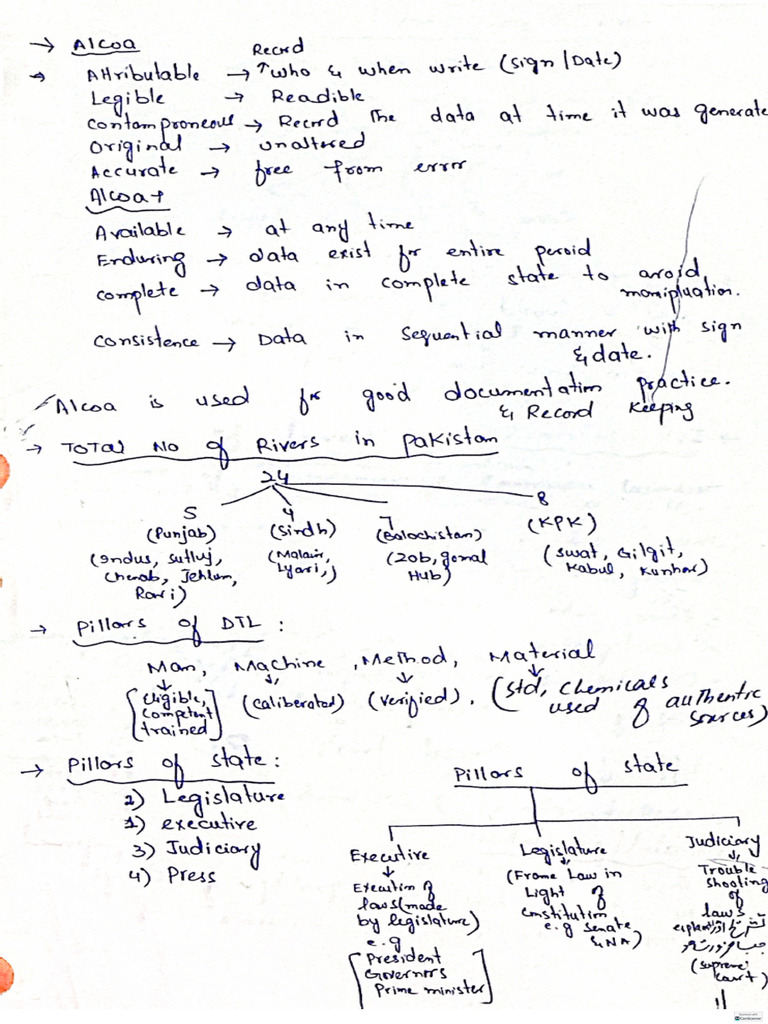 → Alcoa
Record
→ Attributable → ↑ Who & when write (sign/Date)
Legible → Readible
Contamproneous → Record the data at time it was generate
Original → unaltered
Accurate → free from error
Alcoa+
Available → at any time
Enduring → data exist for entire peroid
complete → data in complete state to avoid
manipluation.
Consistence → Data in sequential manner with sign
& date.
Alcoa is used for good documentation practice.
& Record Keeping
→ Total No of Rivers in Pakistan
24
5 4 7 8
(Punjab) (Sindh) (Balochistan) (KPK)
(Indus, sutluj, (Malair, (Zob, gomal (swat, Gilgit,
Chenab, Jehlum, Lyari,) Hub) Kabul, Kunhar)
Ravi)
→ Pillars of DTL :
Man, Machine, Method, Material
[Eligible, (caliberated) (verified), (std, chemicals
competent used of authentic
trained] sources)
→ Pillars of state :
2) Legislature
1) executive
3) Judiciary
4) Press
Pillars of state
Executive Legislature Judiciary
Execution of (Frame Law in Trouble
laws (made Light of shooting
by legislature) Constitution of
e.g e.g senate laws
[President & NA)
Governors (supreme
Prime minister] court)
CamScanner